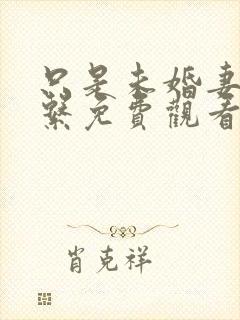 只是未婚妻
繫免費觀看
肖克祥